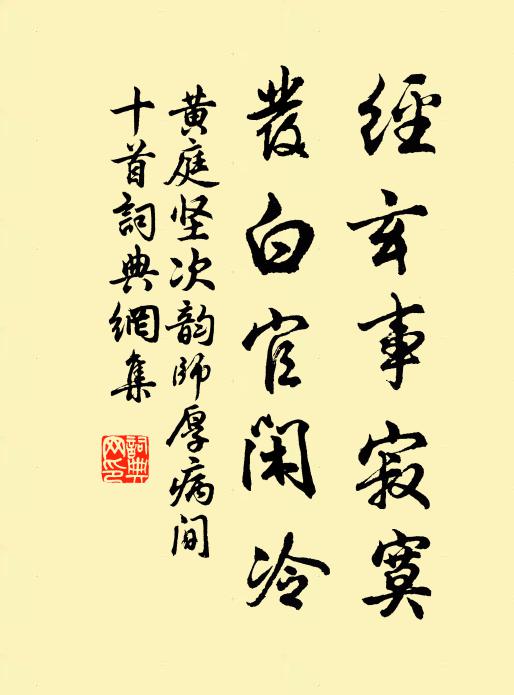 經玄事寂寞
發白官閑冷
黄庭坚次韵師厚病间
十首詞典網集
詞典网印